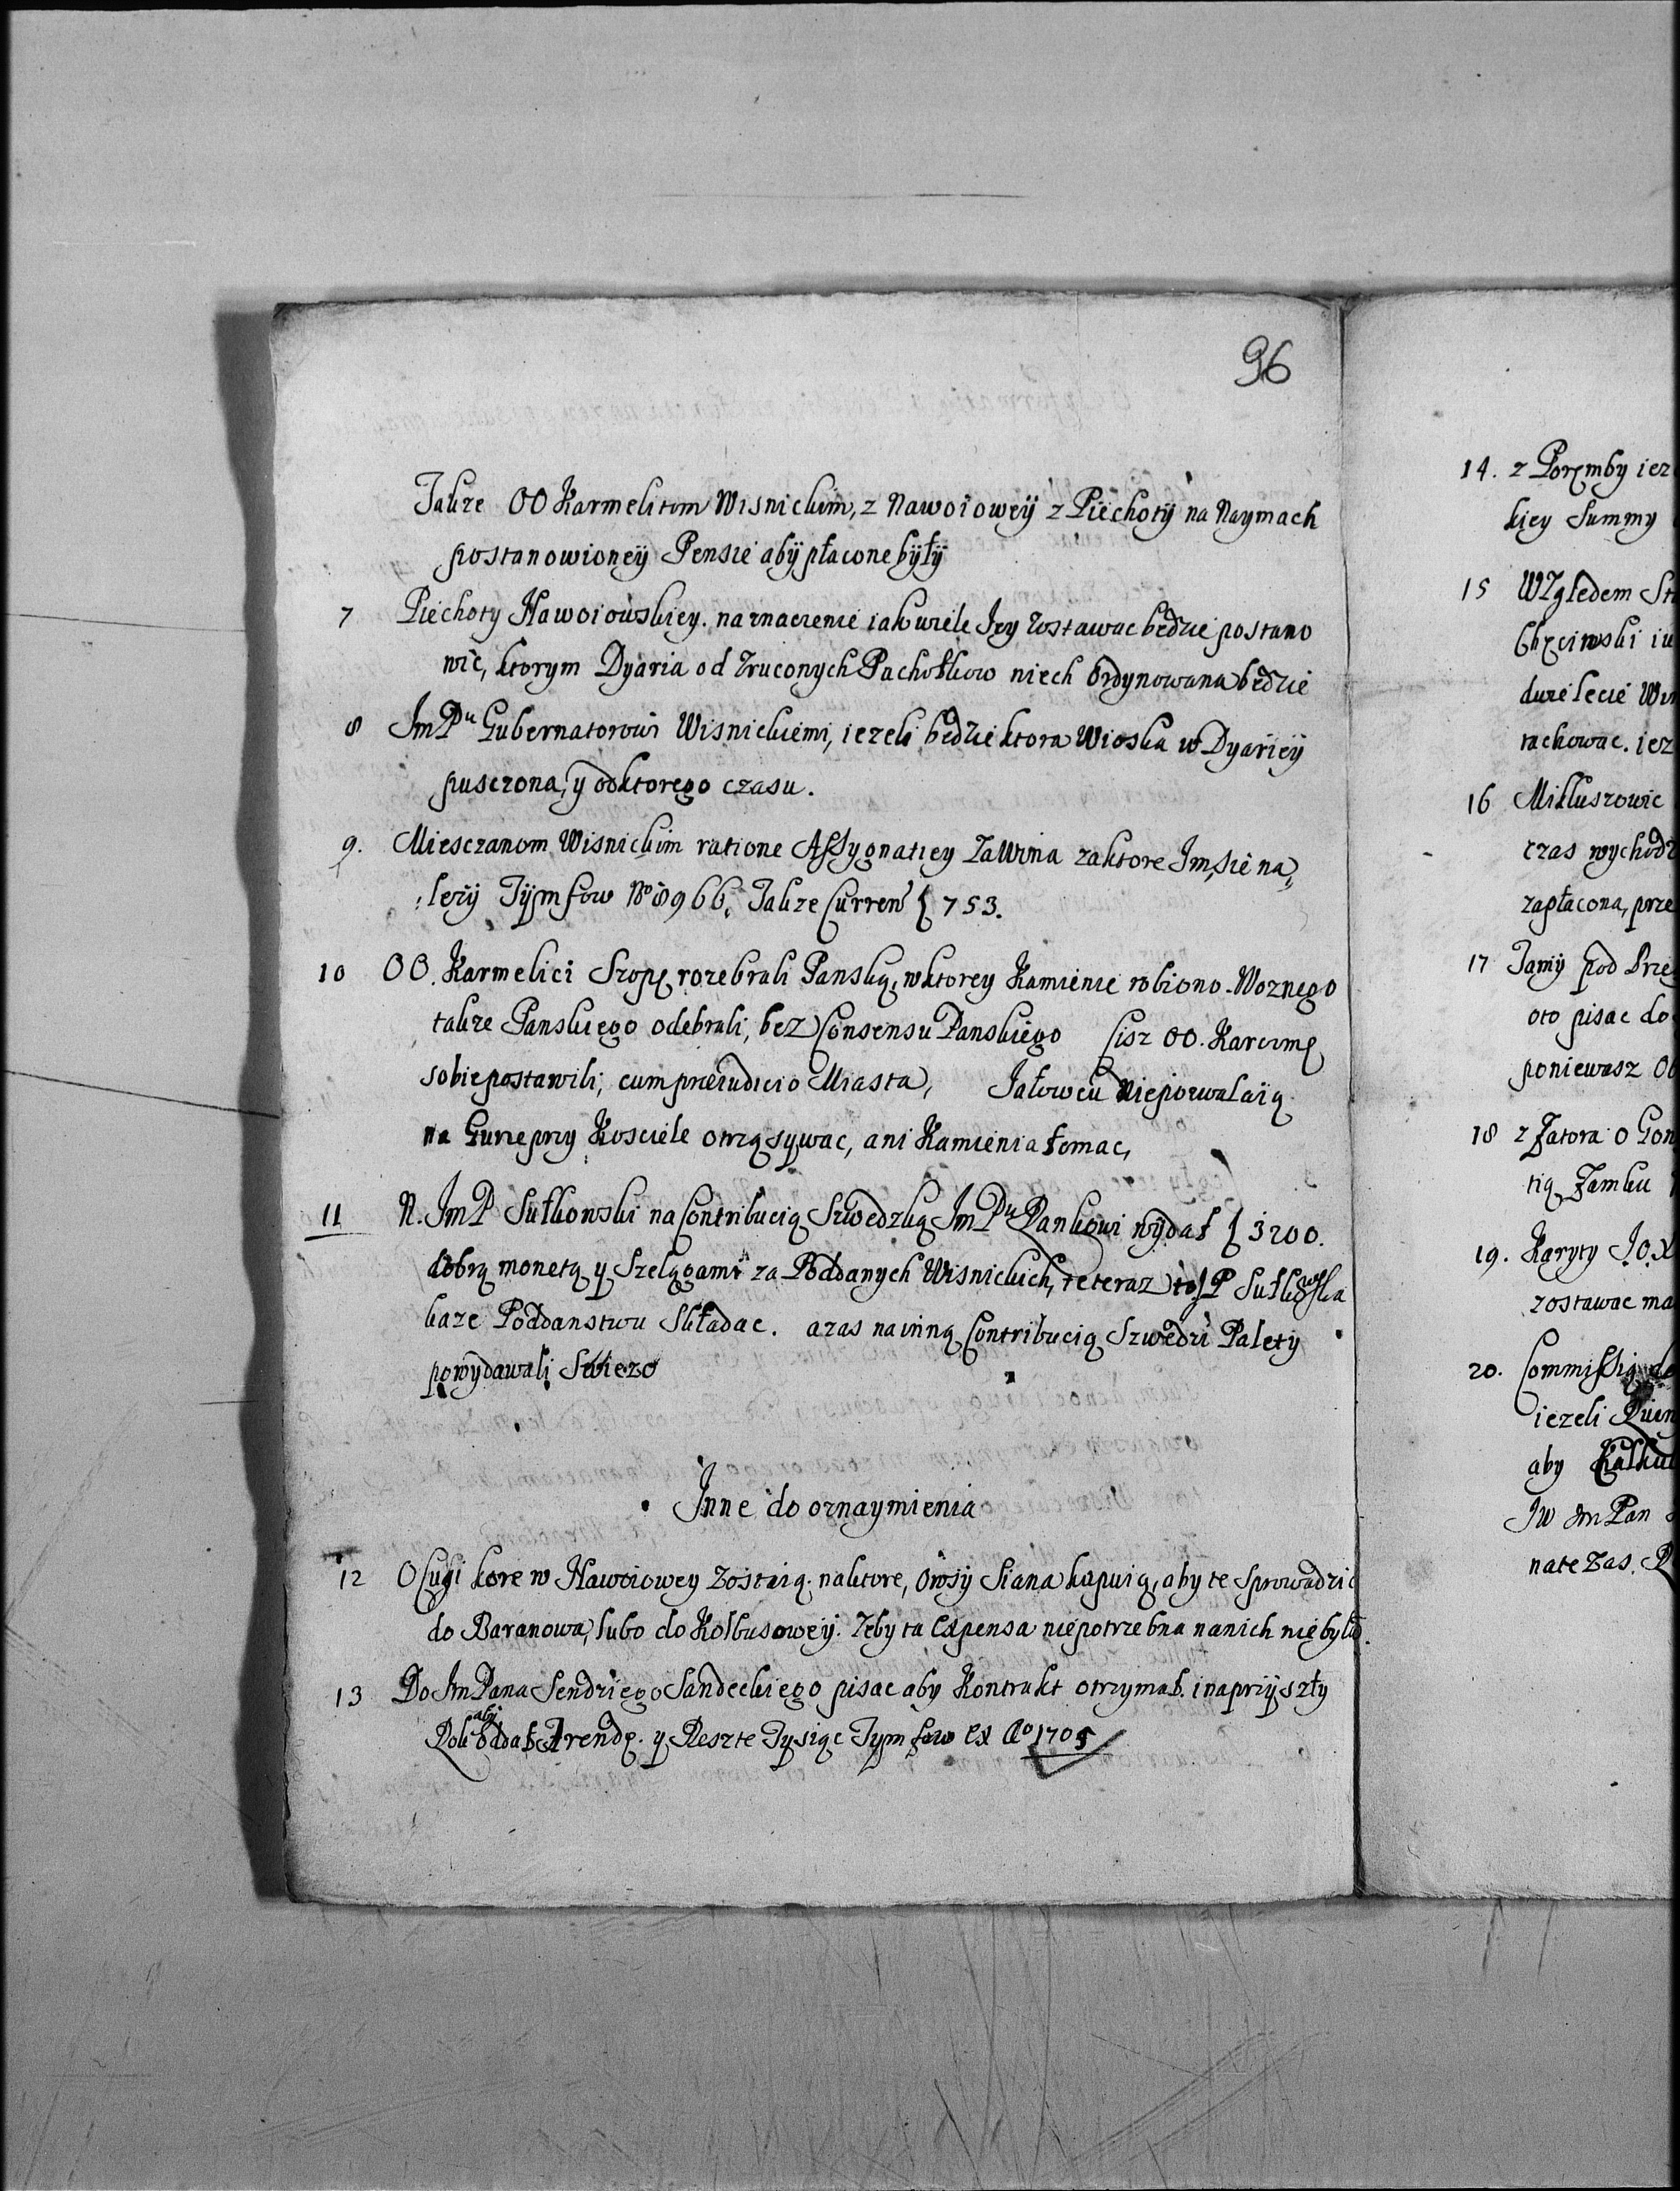 96
Takze OO Karmelitom Wisnickim, z Nawoiowey z Piechoty na Naymach
postanowioney Pensie aby płacone były
7 Piechoty Nawoiowskiey. naznaczenie iak wiele Jey zostawac będzie postano
wic, ktorym Dyaria od Zruconych Pachołkow niech Ordynowana będzie
8 Jm Pu Gubernatorowi Wisnickiemi, iezeli będzie ktora Wioska w Dyariey
pusczona, y od ktorego czasu.
9. Miesczanom Wisnickim ratione Assygnatiey za Wina za ktore Im, sie na,,
:lezy Tymfow No 8966. Takze Curren 753.
10 OO. Karmelici Szopę rozebrali Panską, w ktorey Kamienie robiono. Woznego
takze Panskiego odebrali, bez Consensu Panskiego Cisz OO. Karczmę
sobie postawili, cum praeiudicio Miasta, Jałowcu Niepozwalaią
na Gurze przy Kosciele otrząsywac, ani Kamienia łomac,
11 N. Jm P Sułkowski na Contribucią Szwedzką Jm Pu Pankowi wydał 3200.
dobrą monetą y Szelągami za Poddanych Wisnickich, te teraz to P Sułkowska
kaze Poddanstwu Składac. azas na inną Contribucią Szwedzi Palety
powydawali Swiezo
Inne do oznaymienia
12 O Cugi kore w Nawoiowey Zostaią. na ktore, Owsy Siana kupuią, aby te Sprowadzic
do Baranowa, lubo do Kolbusowey. Zeby ta Expensa niepotrzebna na nich nie była.
13 Do Jm Pana Sendziego Sandeckiego pisac aby Kontrakt otrzymał. i na przyszły
Rok aby oddał Arendę. y Reszte Tysiąc Tymfow ex Ao 1705
14. z Poręmby iez
kiey Summy
15 Względem
rachowac. iez
16 Mikluszowic
czas wychodz
zapłacona, prze
17 Jamy pod
oto pisac do
poniewasz
18 z Zatora o Gon
tią Zamku
19. Karyty J.O.X
zostawac ma
20. Commissią
iezeli
aby
JW Jm Pan
na te Zas.